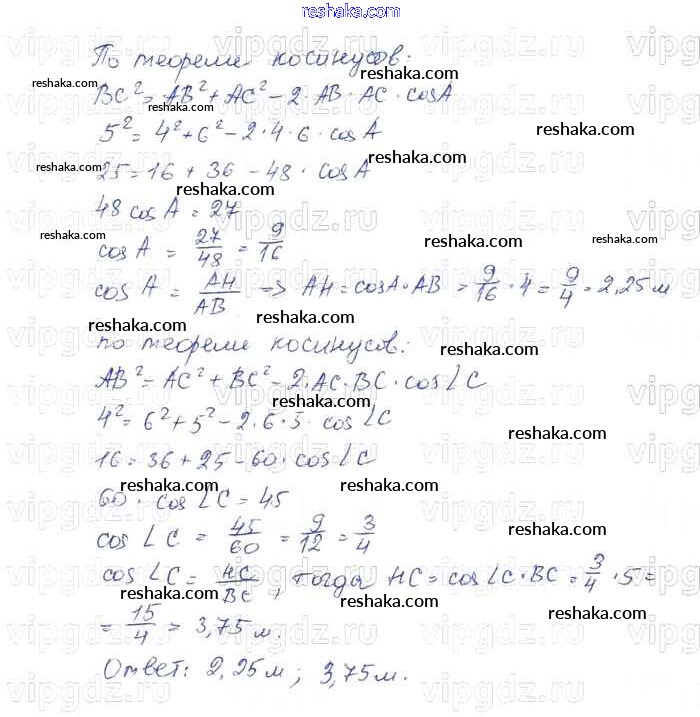 reshaka.com
По теореме косинусов:
BC² = AB² + AC² - 2·AB·AC·cosA
5² = 4² + 6² - 2·4·6·cosA
25 = 16 + 36 - 48·cosA
48 cosA = 27
cosA = 27/48 = 9/16
cosA = AH/AB => AH = cosA·AB = 9/16·4 = 9/4 = 2,25 м
по теореме косинусов:
AB² = AC² + BC² - 2·AC·BC·cos∠C
4² = 6² + 5² - 2·6·5·cos∠C
16 = 36 + 25 - 60·cos∠C
60·cos∠C = 45
cos∠C = 45/60 = 9/12 = 3/4
cos∠C = HC/BC, тогда HC = cos∠C·BC = 3/4·5 =
= 15/4 = 3,75 м.
Ответ: 2,25 м; 3,75 м.